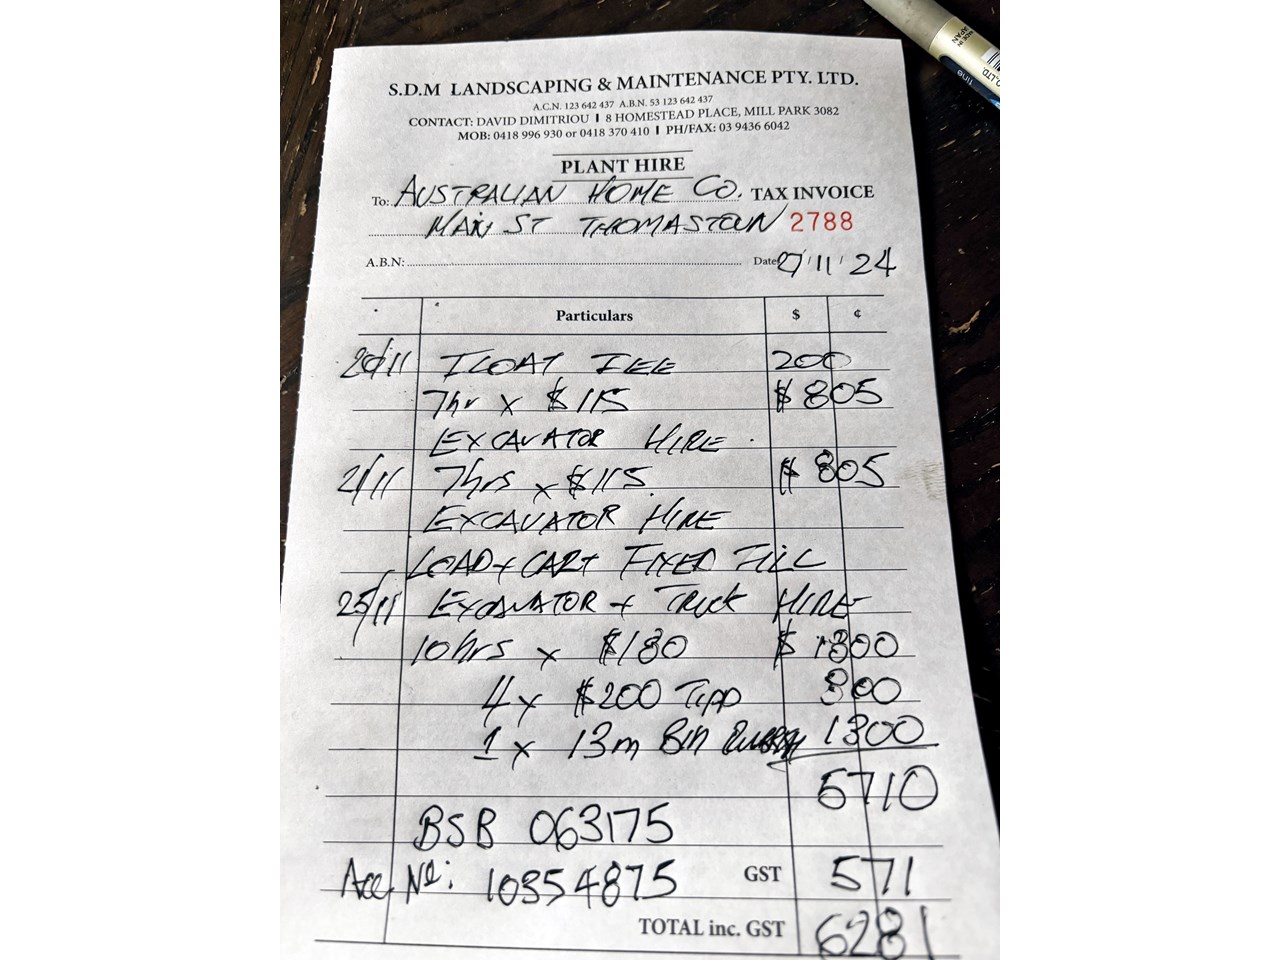 S.D.M LANDSCAPING & MAINTENANCE PTY. LTD.
A.C.N. 123 642 437 A.B.N. 53 123 642 437
CONTACT: DAVID DIMITRIOU | 8 HOMESTEAD PLACE, MILL PARK 3082
MOB: 0418 996 930 or 0418 370 410 | PH/FAX: 03 9436 6042
PLANT HIRE
To: AUSTRALIAN HOME CO. TAX INVOICE
MAIN ST THOMASTOWN 2788
A.B.N: Date 27/11/24
Particulars $ ¢
20/11 FLOAT FEE 200
7hr x $115 $805
EXCAVATOR HIRE
21/11 7hrs x $115 $805
EXCAVATOR HIRE
LOAD + CART FIXED FILL
25/11 EXCAVATOR + TRUCK HIRE
10hrs x $180 $1800
4x $200 TIPP 800
1x 13m BIN 1300
5710
BSB 063175
Acc Nº: 10354875 GST 571
TOTAL inc. GST 6281
MADE IN JAPAN
CO.,LTD.
fine